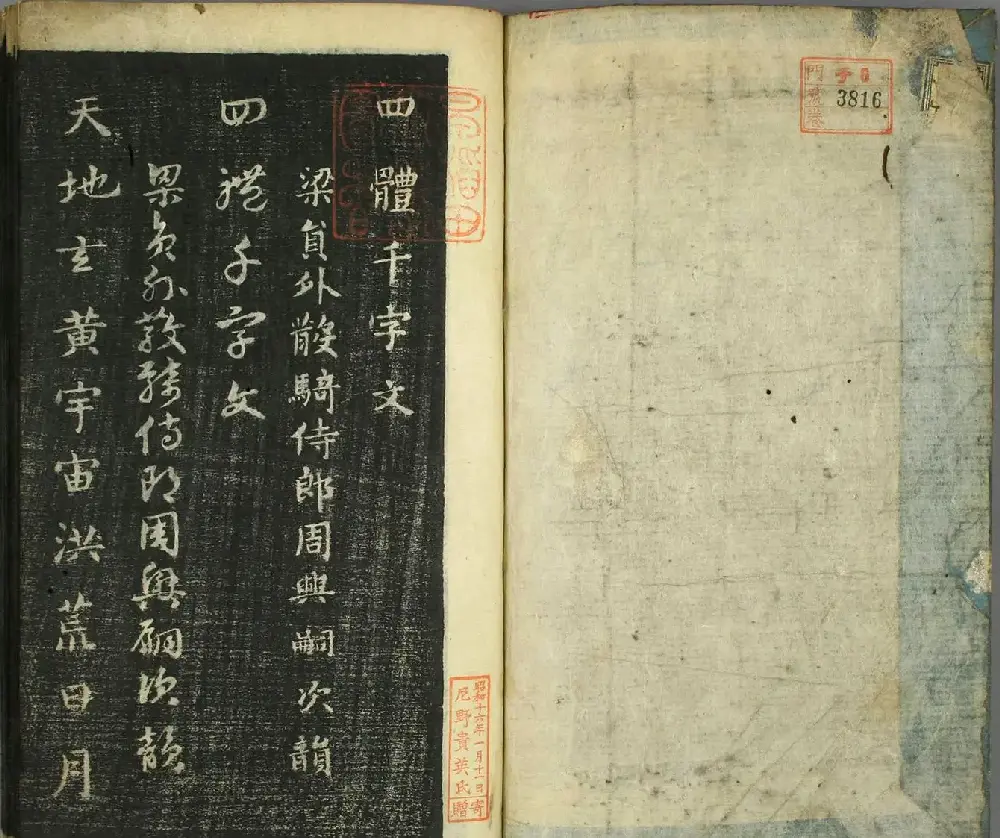 3816
四體千字文
梁貟外散騎侍郎周興嗣次韻
四體千字文
梁貟外散騎侍郎周興嗣次韻
天地玄黄宇宙洪荒日月
昭和十六年一月十一日寄
尾野貴英氏贈